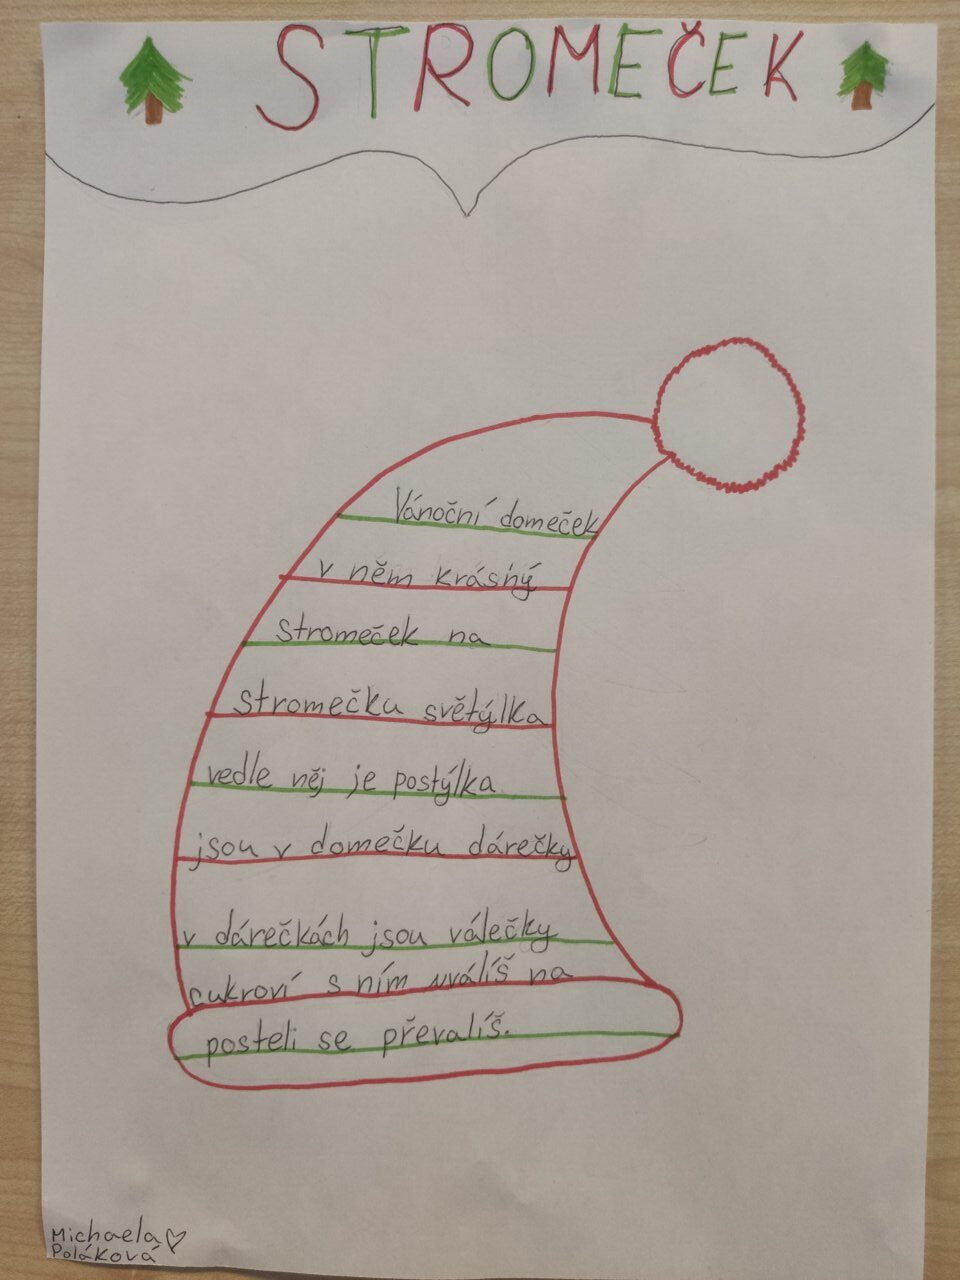 STROMEČEK
Vánoční domeček
v něm krásný
stromeček na
stromečku světýlka
vedle něj je postýlka
jsou v domečku dárečky
v dárečkách jsou válečky
cukroví s ním uválíš na
posteli se převalíš.
Michaela
Poláková